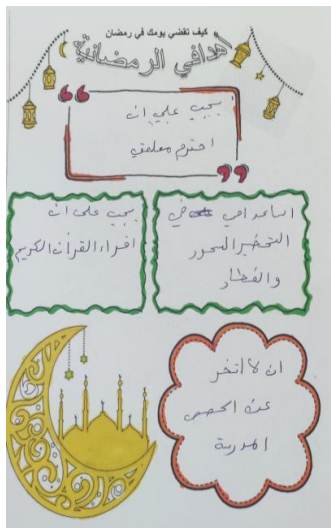 كيف تقضي يومك في رمضان
أهدافي الرمضانية
يجب علي ان
احترم معلمتي
اساعد امي في
التحضير السحور
والفطار
يجب على ان
اقراء القران الكريم
ان لا اتخر
عن الحصص
المدرسة